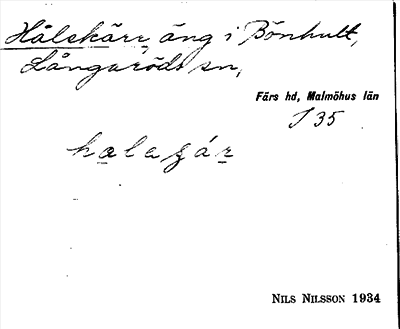 Hålskärr, äng i Bönhult,
Långaröds sn,
Färs hd, Malmöhus län
I 35
Nils Nilsson 1934